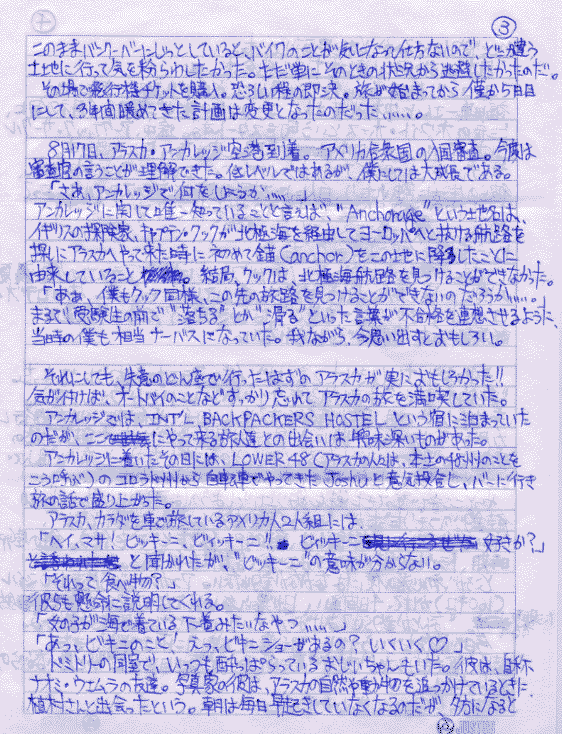 ③
このままバンクーバーにじっとしていると、バイクのことが気になって仕方ないので、どこか違う
土地に行って気を紛らわしたかった。ただ単にそのときの状況から逃避したかったのだ。
その場で飛行機チケットを購入。恐ろしい程の即決。旅が始まってから僅か5日目
にして、3年間暖めてきた計画は変更となったのだった……。
8月17日、アラスカ・アンカレッジ空港到着。アメリカ合衆国の入国審査。今度は
審査官の言うことが理解できた。低レベルではあるが、僕にしては大成長である。
「さあ、アンカレッジで何をしようか……」
アンカレッジに関して唯一知っていることと言えば、"Anchorage"という地名は、
イギリスの探険家、キャプテン・クックが北極海を経由してヨーロッパへと抜ける航路を
探しにアラスカへやって来た時に初めて錨(anchor)をこの土地に降ろしたことに
由来していること。結局、クックは、北極海航路を見つけることができなかった。
「ああ、僕もクック同様、この先の旅路を見つけることができないのだろうか……」
まるで、受験生の前で"落ちる"とか"滑る"といった言葉が不合格を連想させるように、
当時の僕も相当ナーバスになっていた。我ながら、今思い出すとおもしろい。
それにしても、失意のどん底で行ったはずのアラスカが実におもしろかった!!
気が付けば、オートバイのことなどすっかり忘れてアラスカの旅を満喫していた。
アンカレッジでは、INT'L BACKPACKERS HOSTELという宿に泊まっていた
のだが、ここにやって来る旅人達との出会いは興味深いものがあった。
アンカレッジに着いたその日には、LOWER 48(アラスカの人々は、本土の48州のことを
こう呼ぶ)のコロラド州から自転車でやってきたJoshuと意気投合し、バーに行き
旅の話で盛り上がった。
アラスカ、カナダを車で旅しているアメリカ人2人組には、
「ヘイ、マサ! ビッキーニ、ビィッキーニ!! ビッキーニ 好きか?」
と聞かれたが、"ビッキーニ"の意味が分からない。
「それって食べ物?」
彼らも懸命に説明してくれる。
「女の子が海で着ている下着みたいなやつ……」
「あっ、ビキニのこと! えっ、ビキニショーがあるの? いくいく♡」
ドミトリーの同室で、いつも酔っぱらっているおじいちゃんもいた。彼は、日本
ナオミ・ウエムラの友達。写真家の彼は、アラスカの自然や動物を追っかけているときに
植村さんと出会ったという。朝は毎日早起きしていなくなるのだが、夕方になると